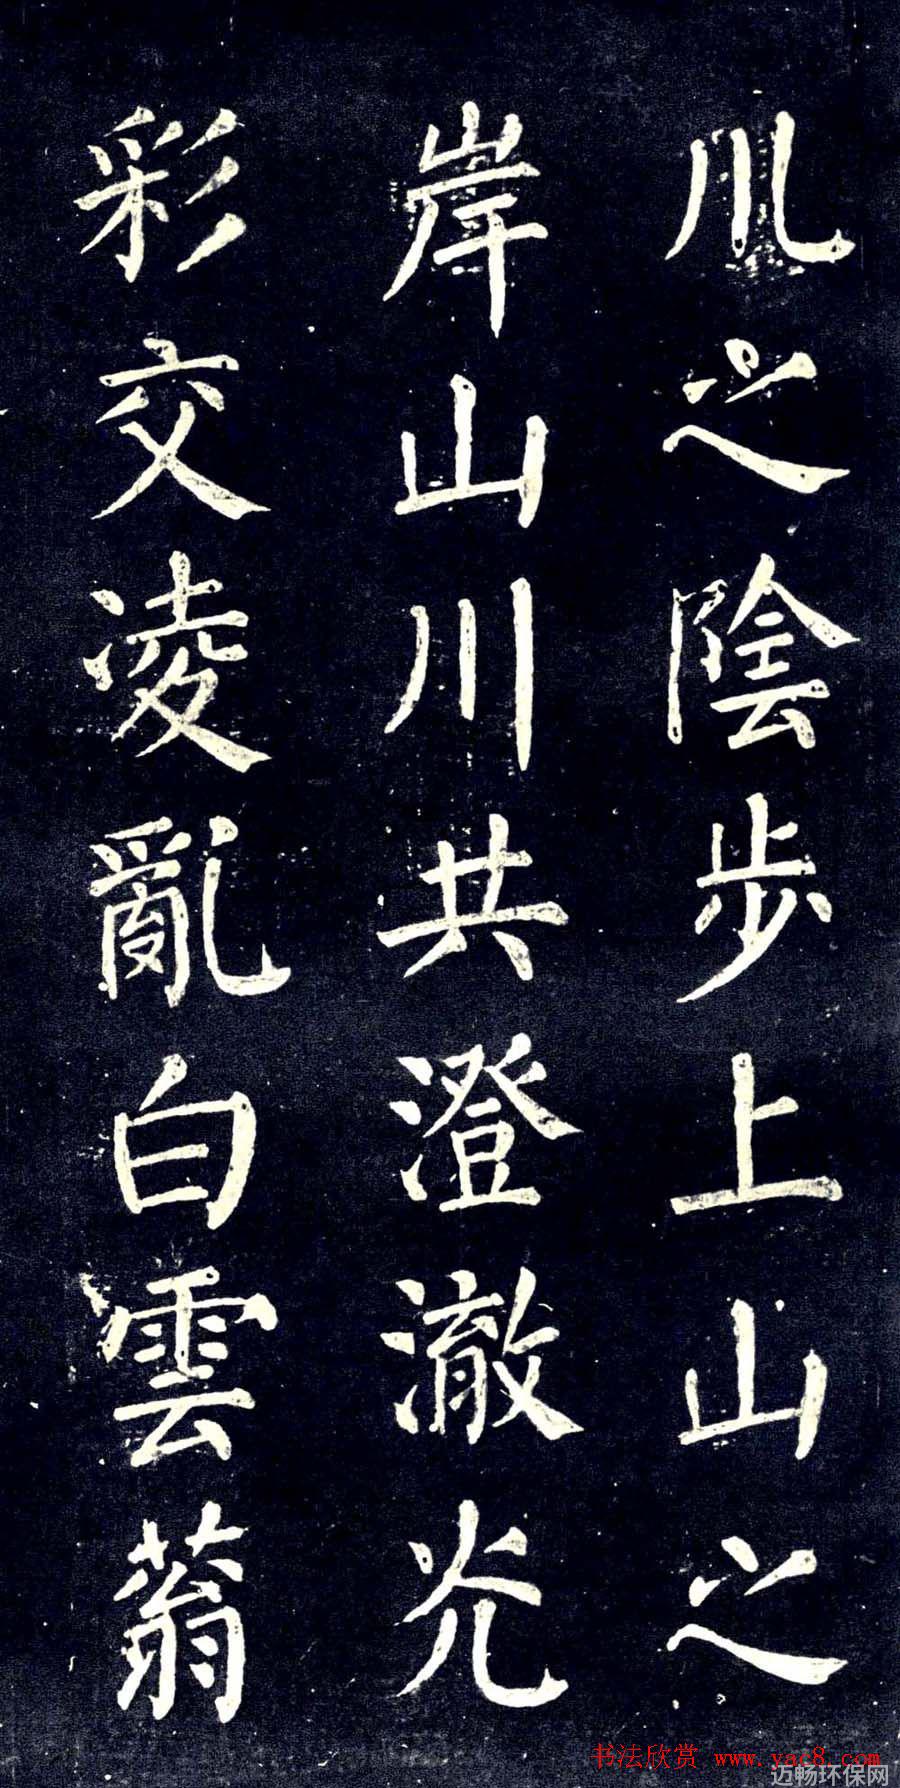 川之陰步上山之
岸山川共澄澈光
彩交凌亂白雲蓊
书法欣赏 www.yac8.com
迈畅环保网